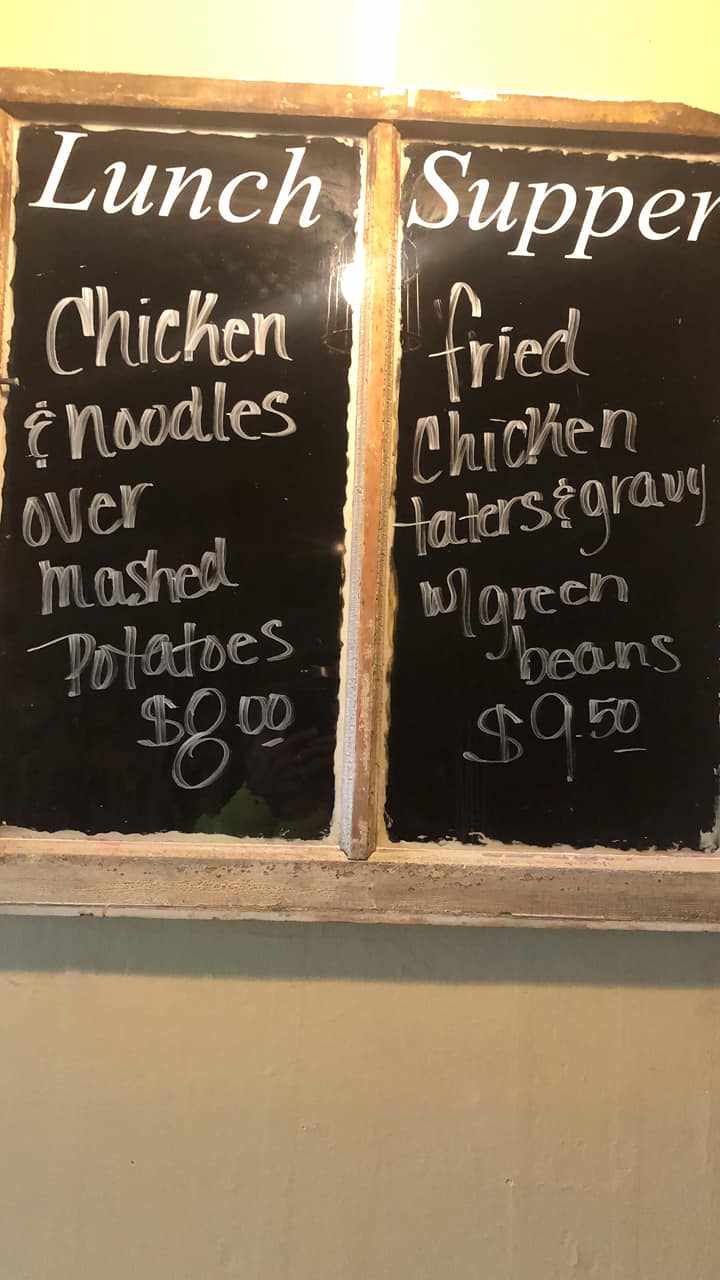 Lunch
Chicken
& noodles
over
mashed
Potatoes
$8.00
Supper
fried
Chicken
taters & gravy
w/ green
beans
$9.50